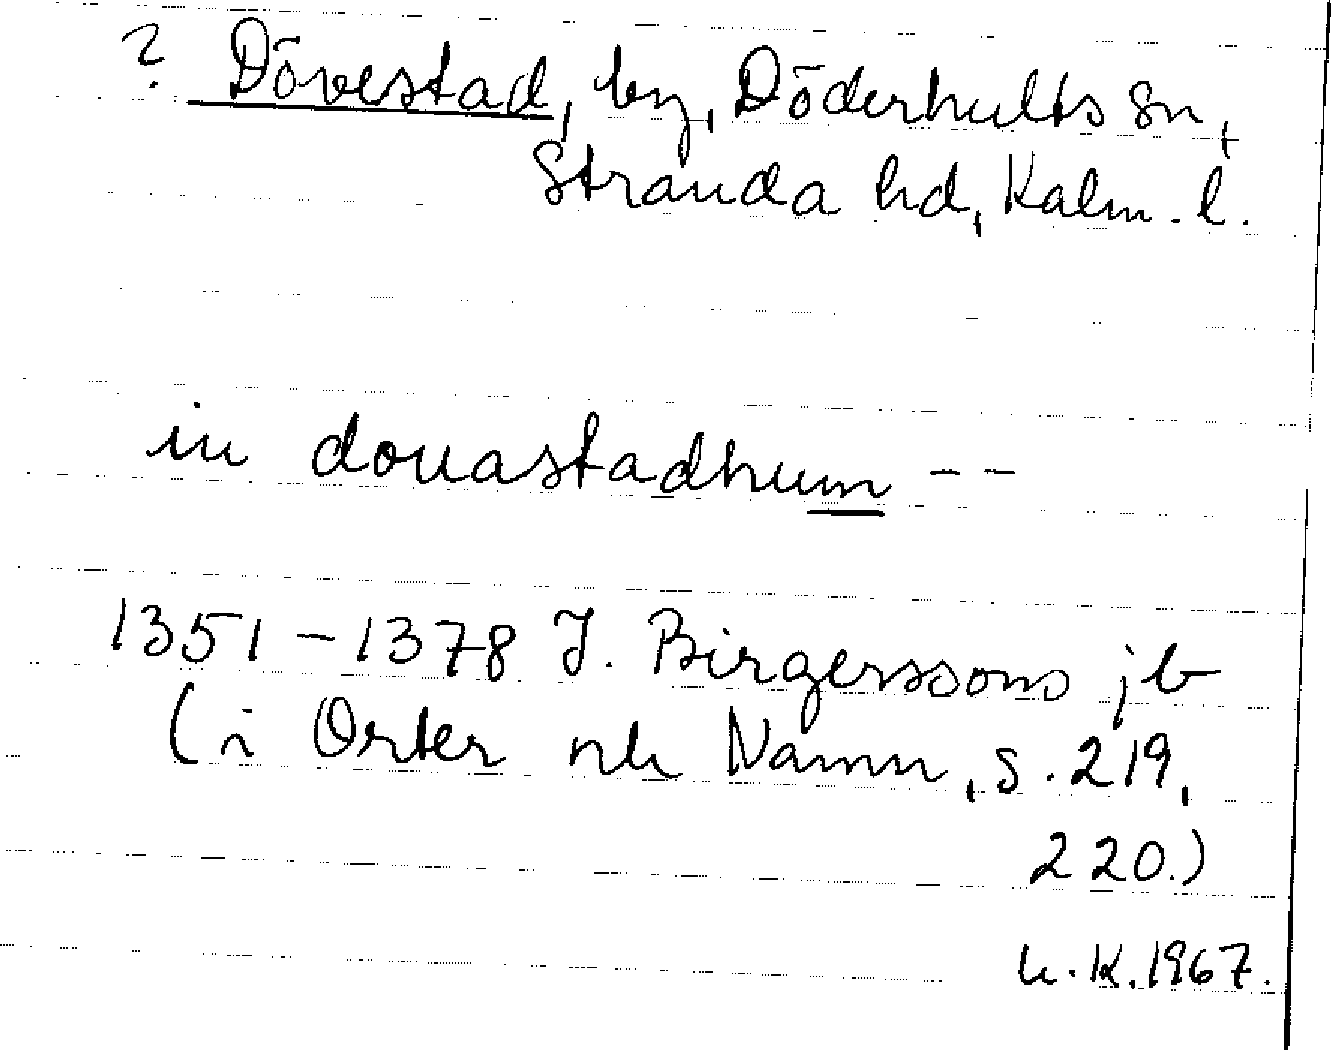 ? Dövestad, by, Döderhults sn,
Stranda hd, Kalm. l.
in douastadhum --
1351-1378 J. Birgerssons jb
(i Orter och Namn, s. 219,
220.)
K. 1967.